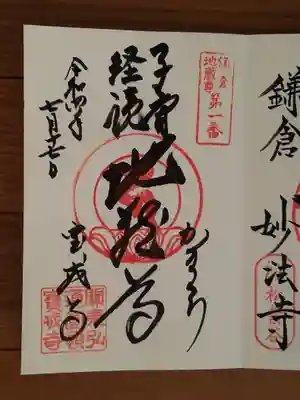 鎌倉 妙法寺
鎌倉
地蔵尊 第一番
かまくら
子育
経読
地蔵尊
宝戒寺
令和四年
寶戒寺